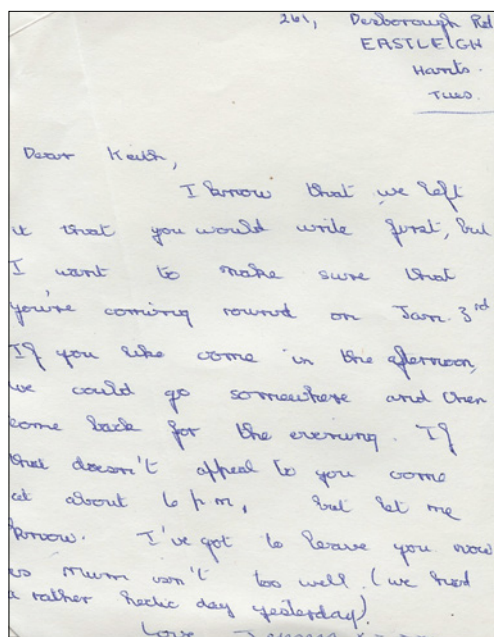 261, Desborough Rd
EASTLEIGH
Hants.
Tues.
Dear Keith,
I know that we left
it that you would write first, but
I want to make sure that
you're coming round on Jan. 3rd
If you like come in the afternoon,
we could go somewhere and then
come back for the evening. If
that doesn't appeal to you come
at about 6 p m, but let me
know. I've got to leave you now
as Mum isn't too well. (we had
a rather hectic day yesterday)
Love